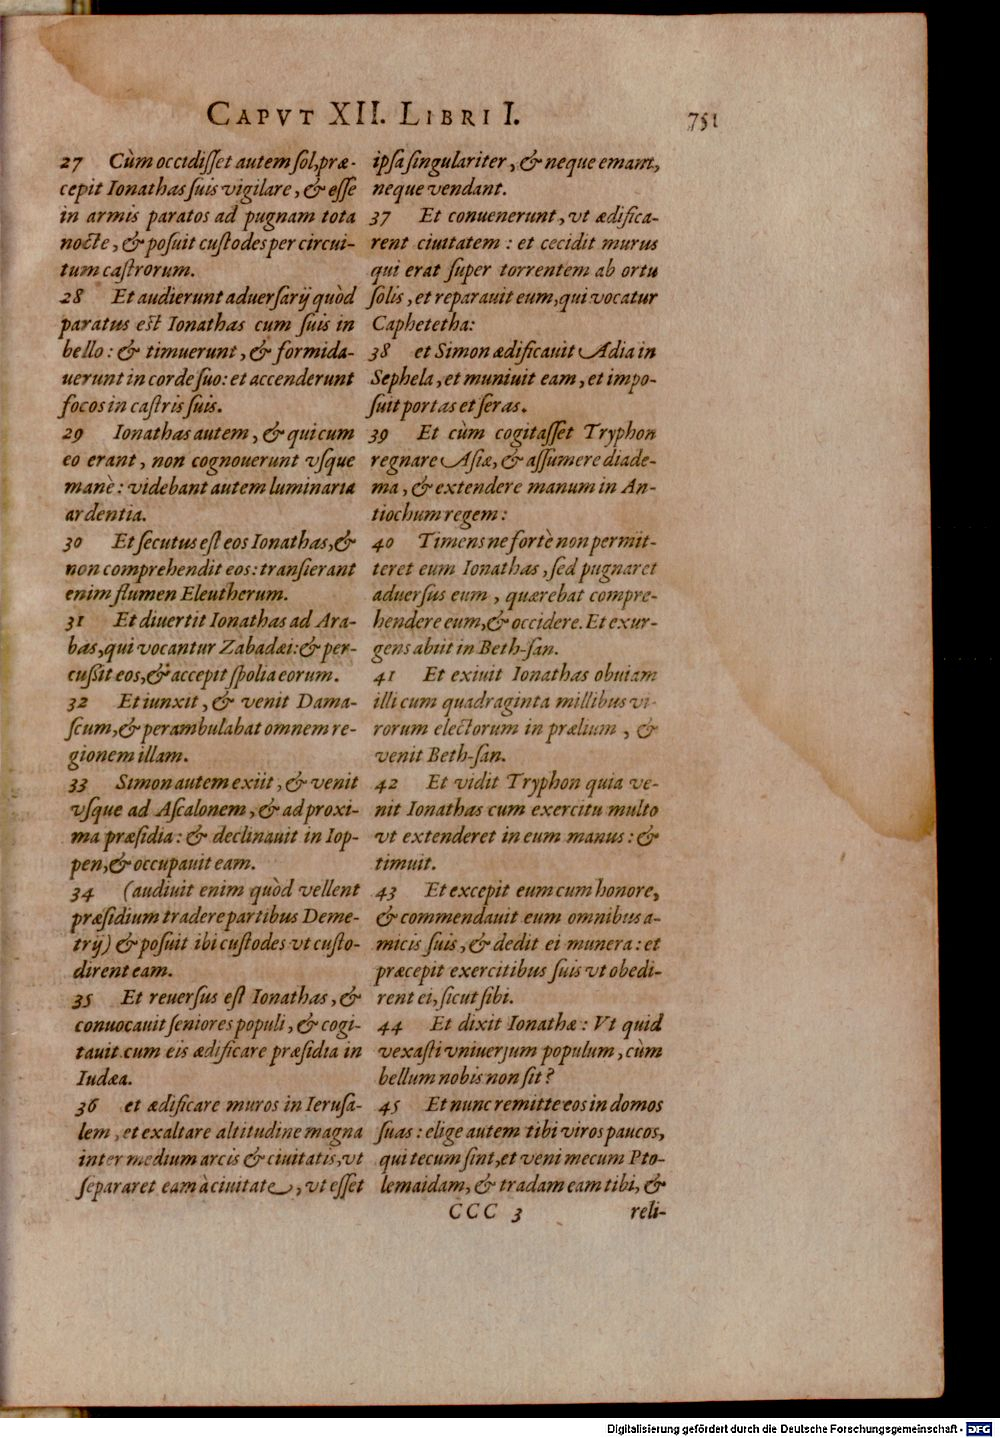 CAPVT XII. LIBRI I. 751
27 Cùm occidisset autem sol, præ-
cepit Ionathas suis vigilare, & esse
in armis paratos ad pugnam tota
nocte, & posuit custodes per circui-
tum castrorum.
28 Et audierunt aduersarij quòd
paratus est Ionathas cum suis in
bello: & timuerunt, & formida-
uerunt in corde suo: et accenderunt
focos in castris suis.
29 Ionathas autem, & qui cum
eo erant, non cognouerunt vsque
manè: videbant autem luminaria
ardentia.
30 Et secutus est eos Ionathas, &
non comprehendit eos: transierant
enim flumen Eleutherum.
31 Et diuertit Ionathas ad Ara-
bas, qui vocantur Zabadæi: & per-
cussit eos, & accepit spolia eorum.
32 Et iunxit, & venit Dama-
scum, & perambulabat omnem re-
gionem illam.
33 Simon autem exiit, & venit
vsque ad Ascalonem, & ad proxi-
ma præsidia: & declinauit in Iop-
pen, & occupauit eam.
34 (audiuit enim quòd vellent
præsidium tradere partibus Deme-
trij) & posuit ibi custodes vt custo-
dirent eam.
35 Et reuersus est Ionathas, &
conuocauit seniores populi, & cogi-
tauit cum eis ædificare præsidia in
Iudæa.
36 et ædificare muros in Ierusa-
lem, et exaltare altitudine magna
inter medium arcis & ciuitatis, vt
separaret eam à ciuitate, vt esset
ipsa singulariter, & neque emant,
neque vendant.
37 Et conuenerunt, vt ædifica-
rent ciuitatem: et cecidit murus
qui erat super torrentem ab ortu
solis, et reparauit eum, qui vocatur
Caphetetha:
38 et Simon ædificauit Adia in
Sephela, et muniuit eam, et impo-
suit portas et seras.
39 Et cùm cogitasset Tryphon
regnare Asiæ, & assumere diade-
ma, & extendere manum in An-
tiochum regem:
40 Timens ne fortè non permit-
teret eum Ionathas, sed pugnaret
aduersus eum, quærebat compre-
hendere eum, & occidere. Et exur-
gens abiit in Beth-san.
41 Et exiuit Ionathas obuiam
illi cum quadraginta millibus vi-
rorum electorum in prælium, &
venit Beth-san.
42 Et vidit Tryphon quia ve-
nit Ionathas cum exercitu multo
vt extenderet in eum manus: &
timuit.
43 Et excepit eum cum honore,
& commendauit eum omnibus a-
micis suis, & dedit ei munera: et
præcepit exercitibus suis vt obedi-
rent ei, sicut sibi.
44 Et dixit Ionathæ: Vt quid
vexasti vniuersum populum, cùm
bellum nobis non sit?
45 Et nunc remitte eos in domos
suas: elige autem tibi viros paucos,
qui tecum sint, et veni mecum Pto-
lemaidam, & tradam eam tibi, &
CCC 3 reli-
Digitalisierung gefördert durch die Deutsche Forschungsgemeinschaft - DFG